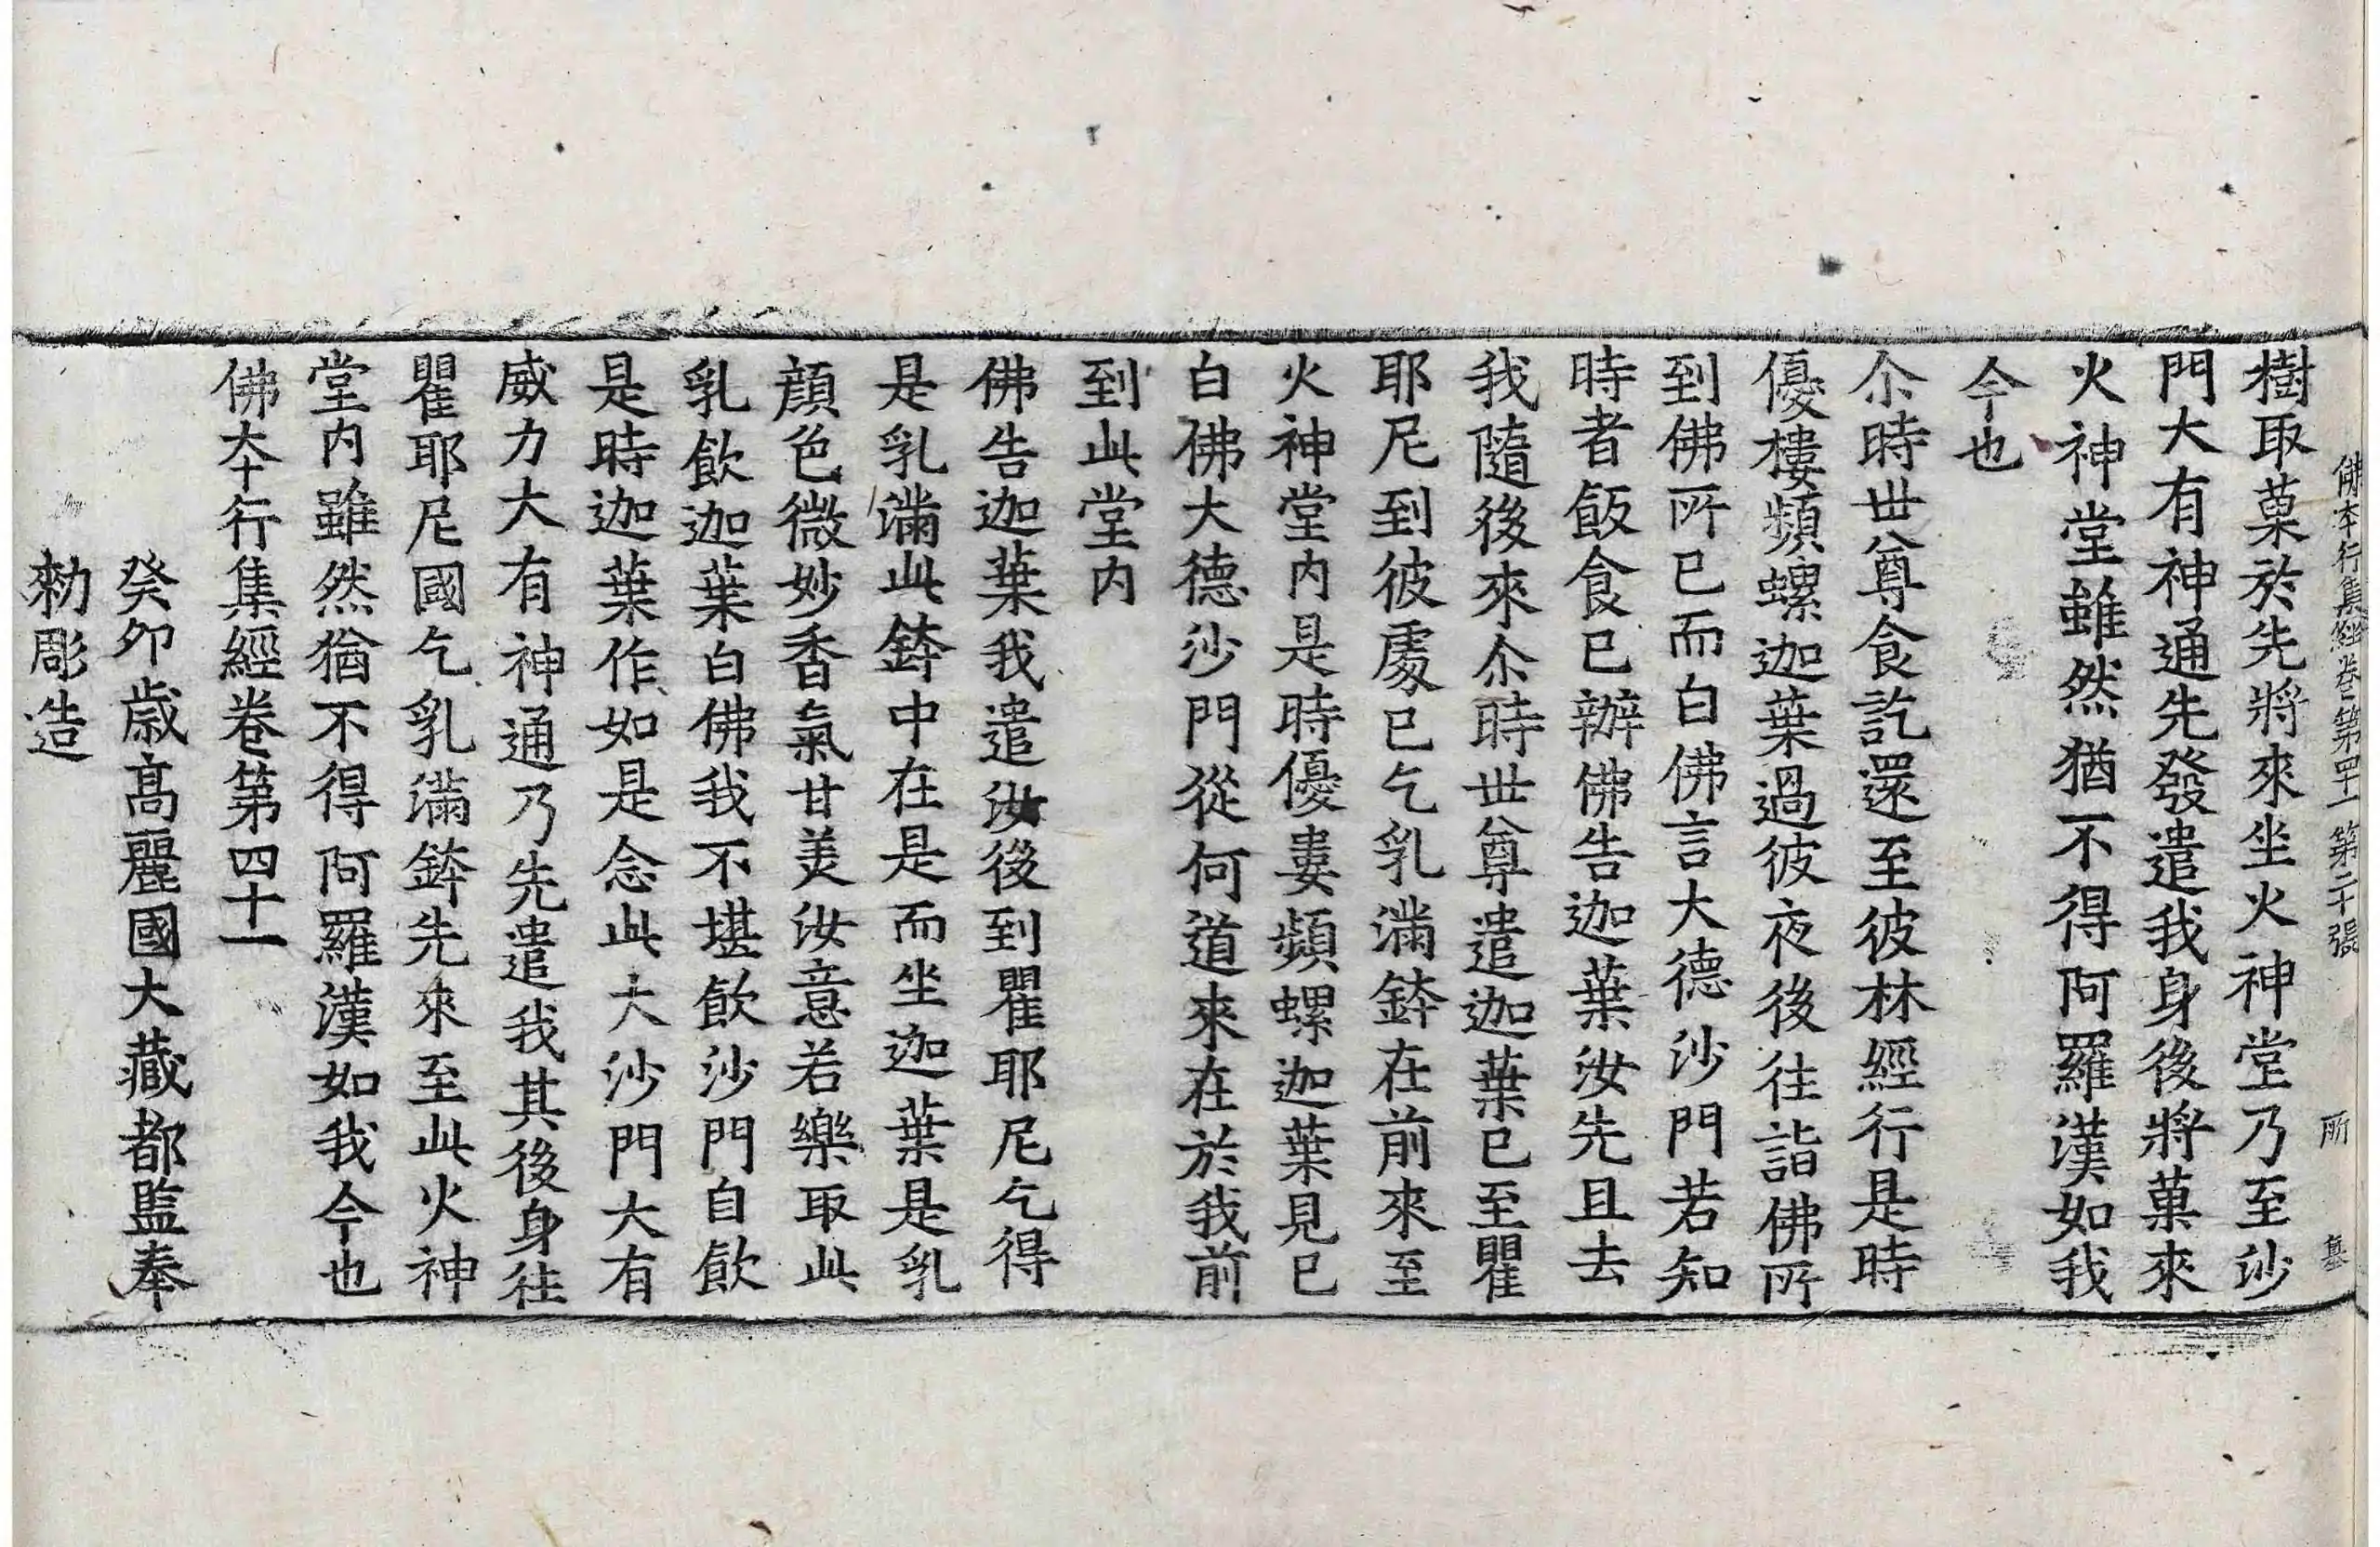 佛本行集經卷第四十一 第二十張 所
樹取菓於先將來坐火神堂乃至沙
門大有神通先發遣我身後將菓來
火神堂雖然猶不得阿羅漢如我
今也
尒時世尊食訖還至彼林經行是時
優樓頻螺迦葉過彼夜後往詣佛所
到佛所已而白佛言大德沙門若知
時者飯食已辦佛告迦葉汝先且去
我隨後來尒時世尊遣迦葉已至瞿
耶尼到彼處已乞乳滿鉢在前來至
火神堂内是時優婁頻螺迦葉見已
白佛大德沙門從何道來在於我前
到此堂内
佛告迦葉我遣汝後到瞿耶尼乞得
是乳滿此鉢中在是而坐迦葉是乳
顏色微妙香氣甘美汝意若樂取此
乳飲迦葉白佛我不堪飲沙門自飲
是時迦葉作如是念此大沙門大有
威力大有神通乃先遣我其後身往
瞿耶尼國乞乳滿鉢先來至此火神
堂内雖然猶不得阿羅漢如我今也
佛本行集經卷第四十一
癸卯歲高麗國大藏都監奉
勑彫造